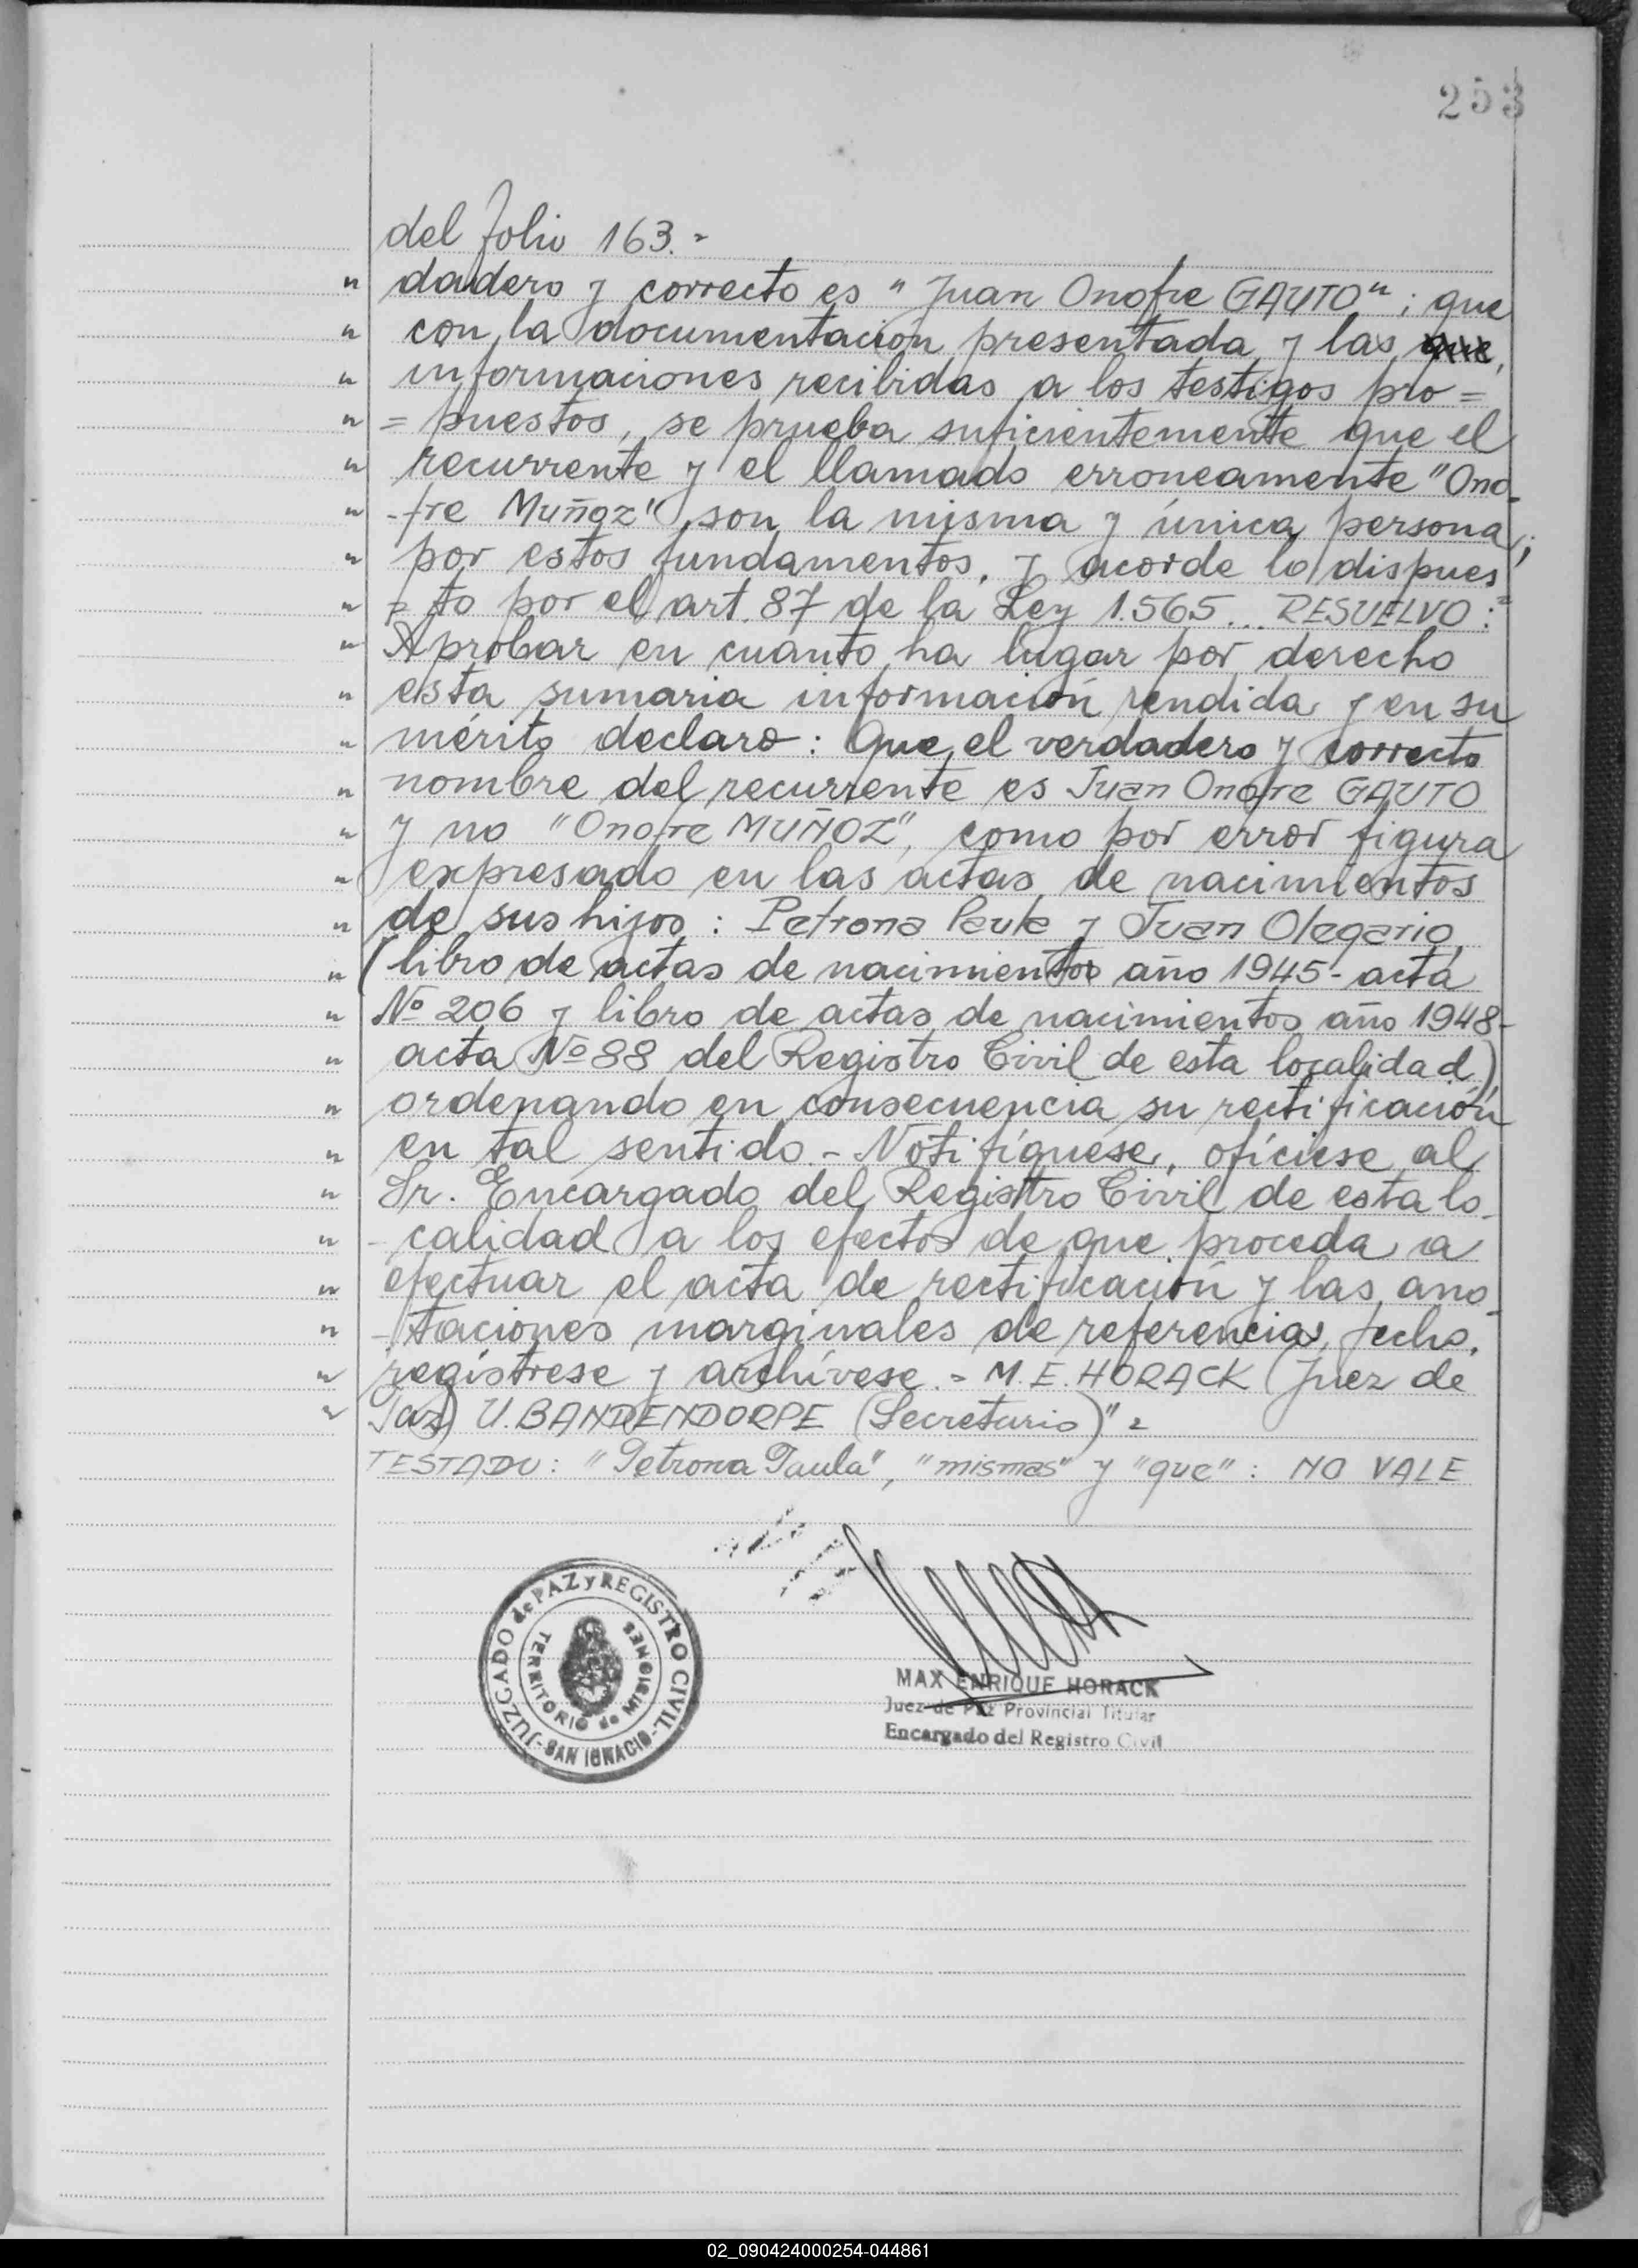 253
del folio 163.=
" dadero y correcto es "Juan Onofre GAUTO"; que
" con la documentación presentada y las que
" informaciones recibidas a los testigos pro=
" =puestos, se prueba suficientemente que el
" recurrente y el llamado erroneamente "Ono-
" -fre Muñoz" son la misma y única persona;
" por estos fundamentos, y acorde lo dispues=
" =to por el art. 87 de la Ley 1.565... RESUELVO:
" Aprobar en cuanto ha lugar por derecho
" esta sumaria información rendida y en su
" mérito declaro: Que el verdadero y correcto
" nombre del recurrente es Juan Onofre GAUTO
" y no "Onofre MUÑOZ", como por error figura
" expresado en las actas de nacimientos
" de sus hijos: Petrona Paula y Juan Olegario,
" (libro de actas de nacimientos año 1945- acta
" Nº 206 y libro de actas de nacimientos año 1948-
" acta Nº 88 del Registro Civil de esta localidad)
" ordenando en consecuencia su rectificación
" en tal sentido.- Notifíquese, ofíciese al
" Sr. Encargado del Registro Civil de esta lo-
" -calidad a los efectos de que proceda a
" efectuar el acta de rectificación y las ano-
" -taciones marginales de referencia, fecho,
" regístrese y archívese.- M.E. HORACK (Juez de
" Paz) U. BANDENDORPE (Secretario)"=
TESTADO: "Petrona Paula", "mismas" y "que": NO VALE
JUZGADO de PAZ y REGISTRO CIVIL
TERRITORIO de MISIONES
-SAN IGNACIO-
MAX ENRIQUE HORACK
Juez de Paz Provincial Titular
Encargado del Registro Civil
02_090424000254-044861